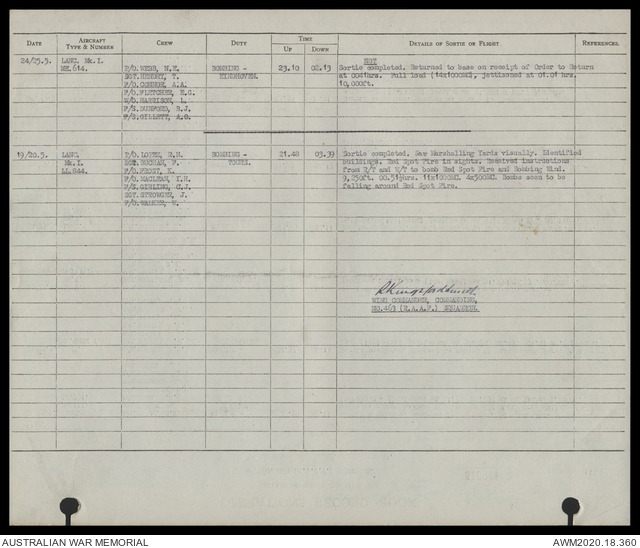 DATE AIRCRAFT TYPE & NUMBER CREW DUTY TIME UP DOWN DETAILS OF SORTIE OR FLIGHT REFERENCES.
NOT
24/25.5. LANC. Mk.I. P/O. WEBB, BOMBING - 23.10 02.13 Sortie completed. Returned to base on receipt of Order to Return
ME.614. SGT. HENDRY, T. EINDHOVEN. at 0041hrs. Full load (14x1000MC, jettisoned at 01.01 hrs.
F/O. CONNOR, A.A. 10,000ft.
F/O. FLETCHER,
W/O. HARRISON, L.
F/S. R.J.
F/S. GILLETT, A.G.
19/20.5. LANC. P/O. R.H. BOMBING - 21.48 03.39 Sortie completed. Saw Marshalling Yards visually. Identified
Mk.I. SGT. P. TOURS. buildings. Red Spot Fire in sights. Received instructions
LL.844. F/O. K. from R/T and W/T to bomb Red Spot Fire and Bombing Wind.
F/O. MACLEAN, 9,250ft. 00.51½hrs. 11x1000MC. 4x500MC. Bombs seen to be
F/S. GIBLING, C.J. falling around Red Spot Fire.
SGT. STROWGER, J.
F/O. WALKER, W.
WING COMMANDER, COMMANDING,
NO.463 (R.A.A.F.) SQUADRON.
AUSTRALIAN WAR MEMORIAL AWM2020.18.360